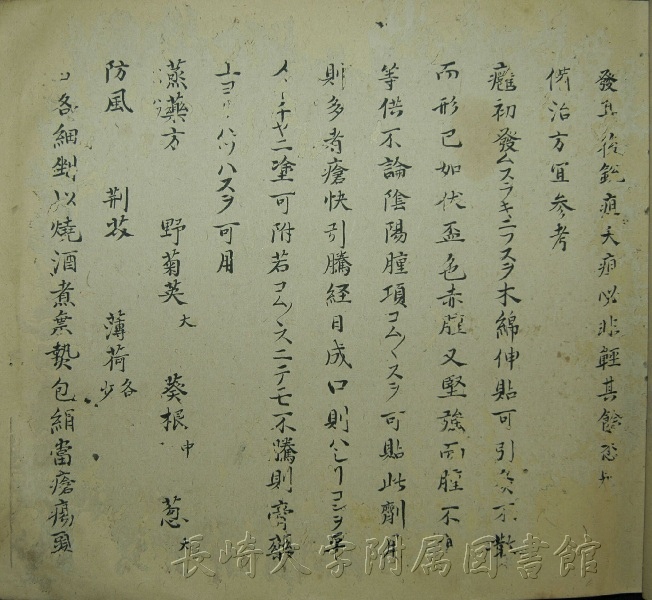 發其後銳疽夭疽必非輕其餘
備治方宜參考
癰初發ムスラキニフスヲ木綿伸貼可引炎不散
而形已如伏盃色赤腫又堅強而腫不
等供不論陰陽腫項コムクスヲ可貼此劑用
則多者瘡快引膿経日成口則ハシリコンヲ
チヤニ塗可附若コムクスニテモ不膿則膏藥
上ヨリハツハスヲ可用
蒸藥方 野菊英大 葵根中 葱大
防風 荆芥 薄荷各少
各細剉以燒酒煮蒸熱包絹當瘡瘍頭
長崎大学附属図書館